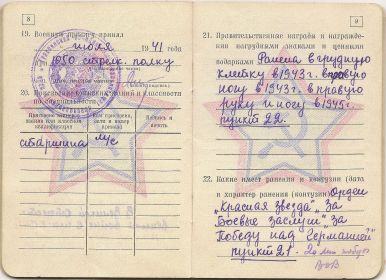 8
19. Военную присягу принял
июля 1941 года
1050 стрелк. полку
20. Присвоение званий и классности
по специальности:
старшина м/с
9
21. Правительственные награды и награждения
нагрудными знаками и ценными
подарками Ранена в грудную
клетку в 1943 г. в правую
ногу в 1943 г. в правую
руку и ногу в 1945 г.
пункт 22.
22. Какие имеет ранения и контузии (дата
и характер ранения (контузии) Орден
„Красная звезда" „За
Боевые заслуги" „За
Победу над Германией"
пункт 21 - 20 лет победы
ВОВ